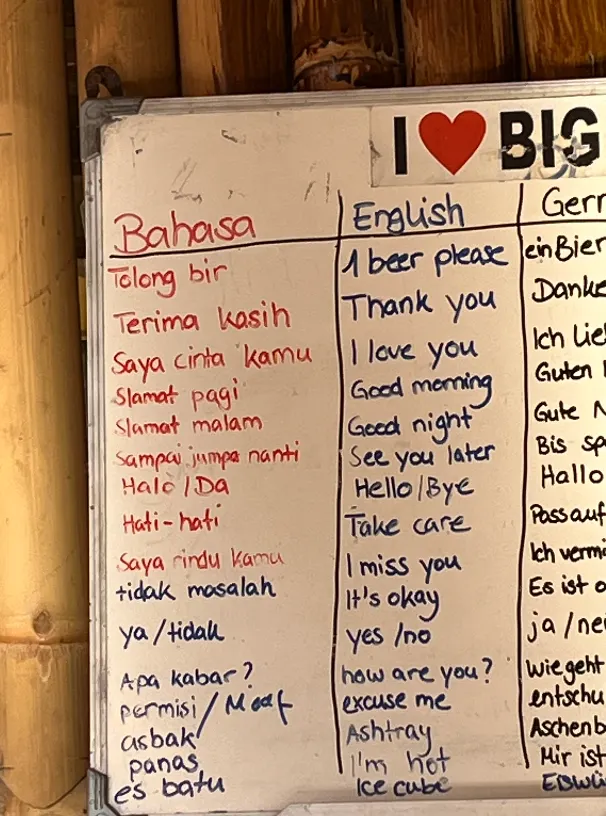 I ❤ BIG
Bahasa English Gerr
Tolong bir 1 beer please ein Bier
Terima kasih Thank you Danke
Saya cinta kamu I love you Ich Lie
Slamat pagi Good morning Guten
Slamat malam Good night Gute N
Sampai jumpa nanti See you later Bis sp
Halo / Da Hello / Bye Hallo
Hati-hati Take care Pass auf
Saya rindu kamu I miss you Ich vermi
tidak masalah It's okay Es ist o
ya / tidak yes / no ja / nei
Apa kabar? how are you? wie geht
permisi / Maaf excuse me entschu
asbak Ashtray Aschenb
panas I'm hot Mir ist
es batu Ice cube Eiswü